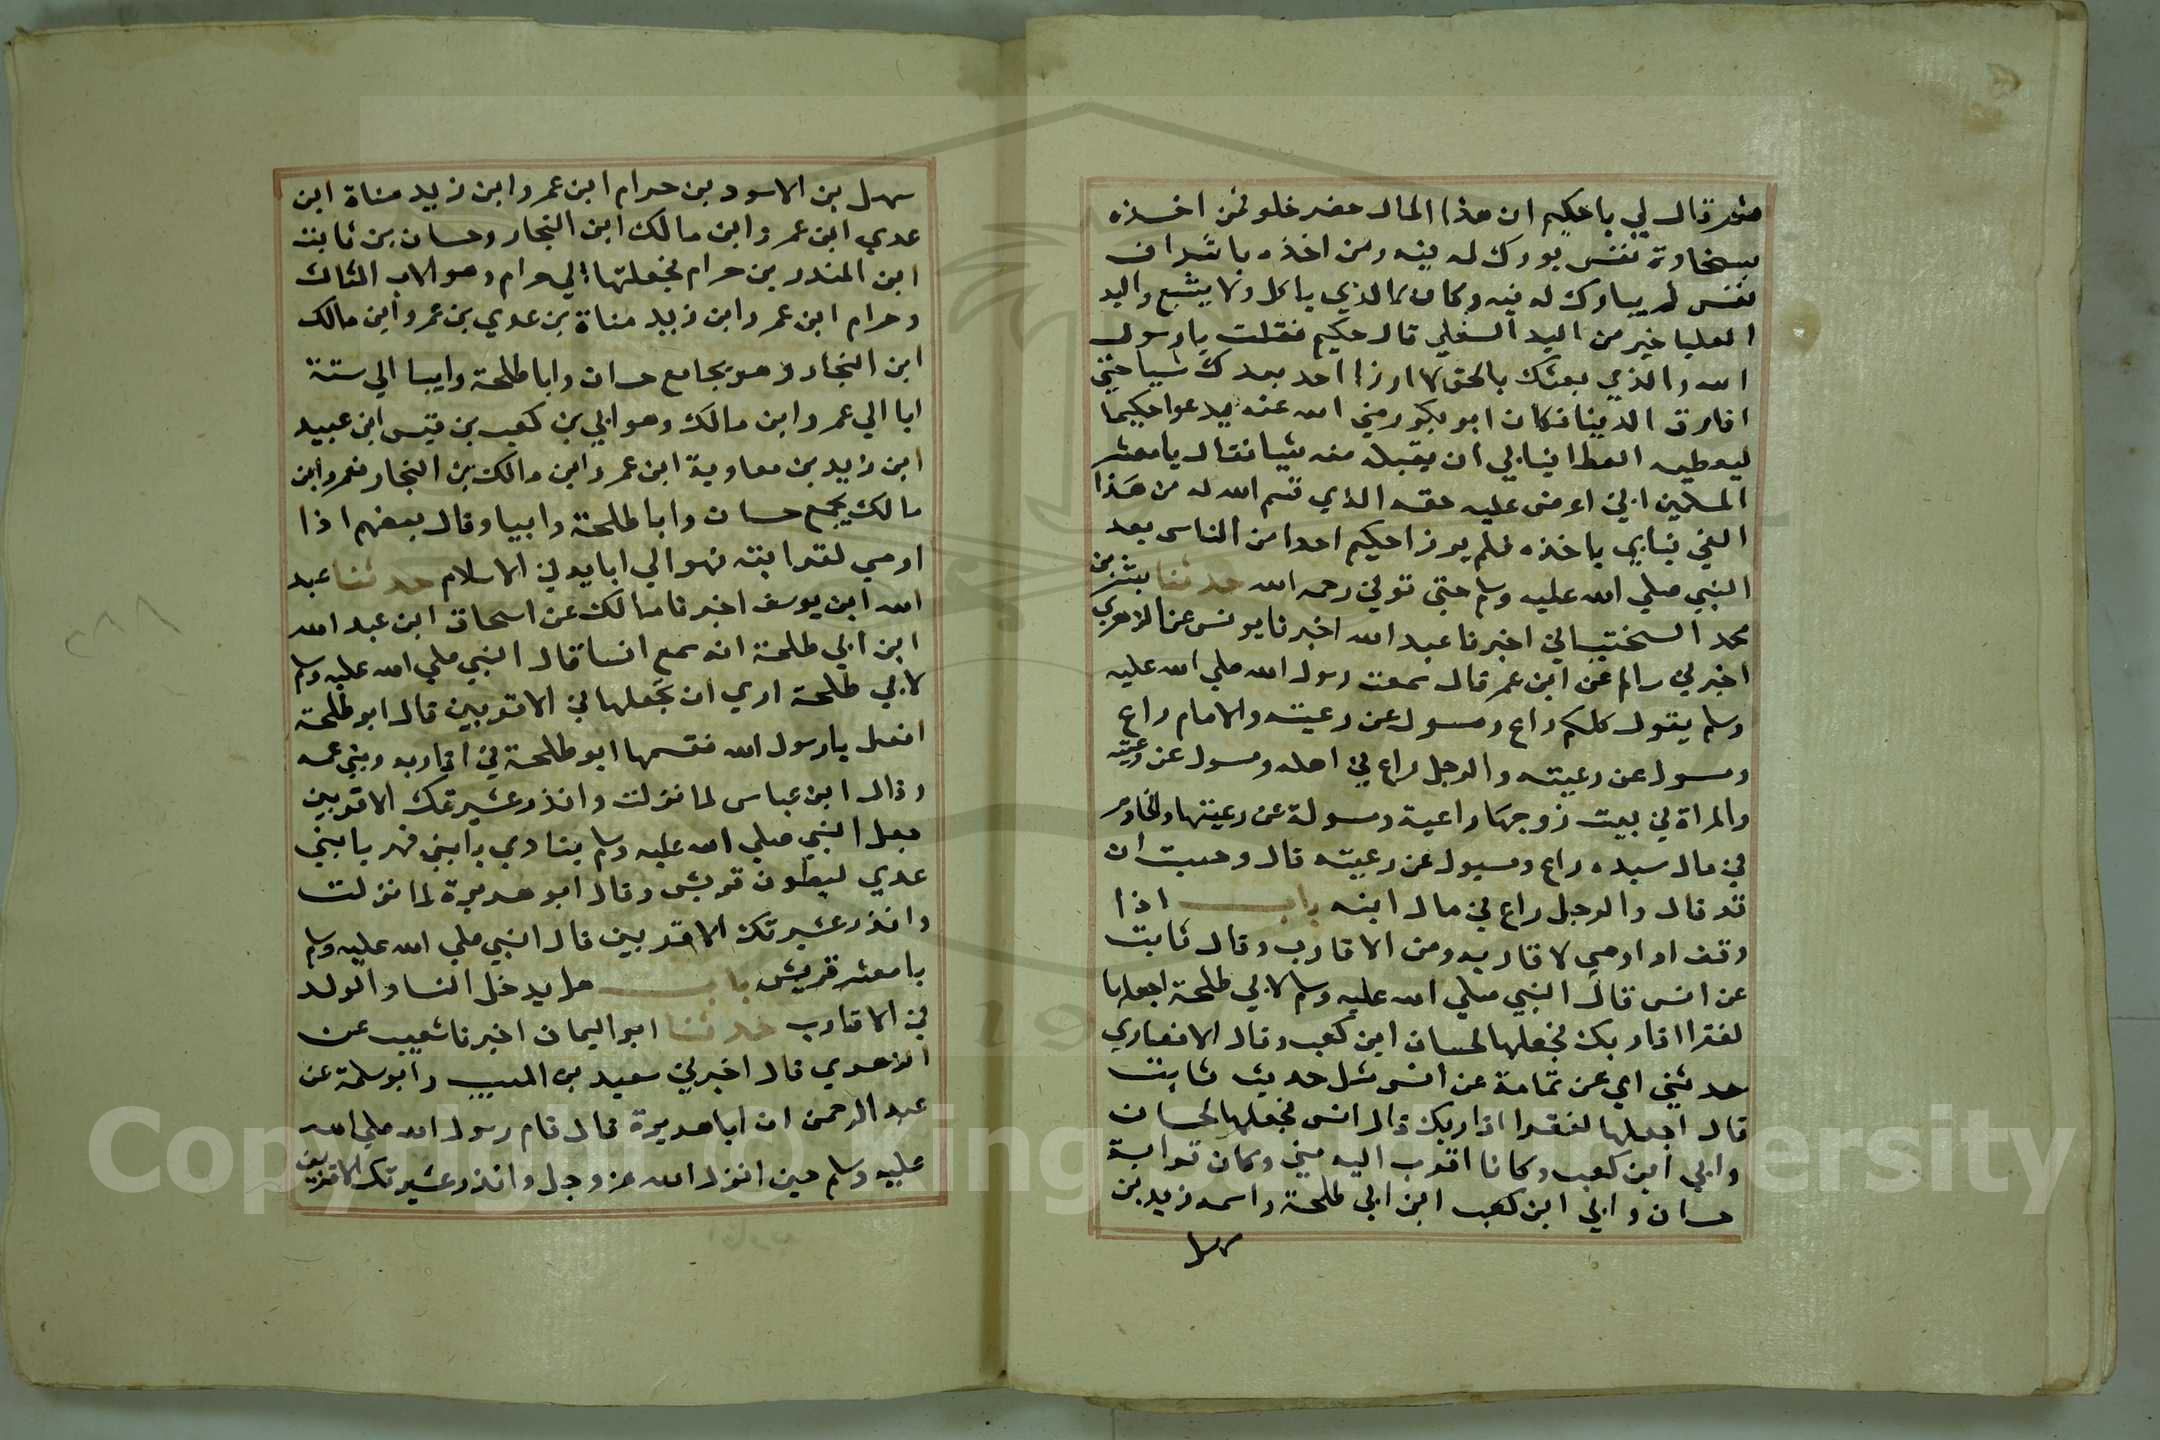 ثم قال لي ياحكيم ان هذا المال خضر حلو فمن اخذه
بسخاوة نفس بورك له فيه ومن اخذه باشراف
نفس لم يبارك له فيه وكان كالذي ياكل ولا يشبع واليد
العليا خير من اليد السفلي قال حكيم فقلت يارسول
الله والذي بعثك بالحق لا ارزا احد بعدك شيا حتي
افارق الدينا فكان ابو بكر رضي الله عنه يدعوا حكيما
ليعطيه العطا فيابي ان يقبل منه شيا فقال يا معشر
المسلمين اني اعرض عليه حقه الذي قسم الله له من هذا
الفي فيابي ياخذه فلم يرزا حكيم احدا من الناس بعد
النبي صلي الله عليه وسلم حتي توفي رحمه الله حدثنا بشر بن
محمد السختياني اخبرنا عبد الله اخبرنا يونس عن الزهري
اخبرني سالم عن ابن عمر قال سمعت رسول الله صلي الله عليه
وسلم يقول كلكم راع ومسول عن رعيته والامام راع
ومسول عن رعيته والرجل راع في اهله ومسول عن رعيته
والمراة في بيت زوجها راعية ومسولة عن رعيتها والخادم
في مال سيده راع ومسيول عن رعيته قال وحسبت ان
قد قال والرجل راع في مال ابيه باب اذا
وقف او اوصي لا قاربه ومن الاقارب وقال ثابت
عن انس قال النبي صلي الله عليه وسلم لابي طلحة اجعلها
لفقرا اقاربك فجعلها لحسان ابن كعب وقال الانصاري
حدثني ابي عن ثمامة عن انس مثل حديث ثابت
قال اجعلها لفقرا اقاربك قال انس فجعلها لحسان
وابي ابن كعب وكانا اقرب اليه مني وكان قرابة
حسان وابي ابن كعب ابن ابي طلحة واسمه زيد بن
سهل
سهل بن الاسود بن حرام ابن عمر وابن زيد مناة ابن
عدي ابن عمر وابن مالك ابن النجار وحسان بن ثابت
ابن المندر بن حرام فجعلتها الي حرام وهو الاب الثالث
وحرام ابن عمر وابن زيد مناة بن عدي بن عمر وابن مالك
ابن النجار وهو يجامع حسان وابا طلحة وابيا الي ستة
ابا الي عمر وابن مالك وهو ابي بن كعب بن قيس ابن عبيد
ابن زايد بن معاوية ابن عمر وابن مالك بن النجار فعمر وابن
مالك يجمع حسان وابا طلحة وابيا وقال بعضهم اذا
اوصي لقرابته فهو الي ابايه في الاسلام حدثنا عبد
الله ابن يوسف اخبرنا مالك عن اسحاق ابن عبد الله
ابن ابي طلحة انه سمع انسا قال النبي صلي الله عليه وسلم
لابي طلحة اري ان تجعلها في الاقربين قال ابو طلحة
افعل يارسول الله فقسمها ابو طلحة في اقاربه وبني عمه
وقال ابن عباس لما نزلت وانذر عشيرتك الاقربين
جعل النبي صلي الله عليه وسلم ينادي يا بني فهر يا بني
عدي لبطون قريش وقال ابو هريرة لما نزلت
وانذر عشيرتك الاقربين قال النبي صلي الله عليه وسلم
يا معشر قريش باب هل يدخل النسا والولد
في الاقارب حدثنا ابو اليمان اخبرنا شعيب عن
الزهري قال اخبرني سعيد بن المسيب وابو سلمة عن
عبد الرحمن ان ابا هريرة قال قام رسول الله صلي الله
عليه وسلم حين انزل الله عز وجل وانذر عشيرتك الاقربين
Copyright © King Saud University